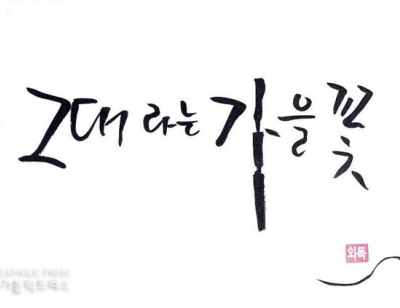 그대라는 가을 꽃
외독
CATHOLIC PRESS
가톨릭프레스